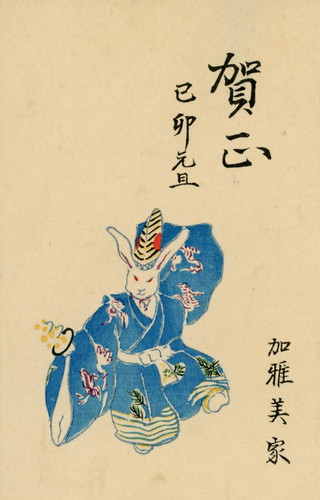 賀正
己卯元旦
加雅美家